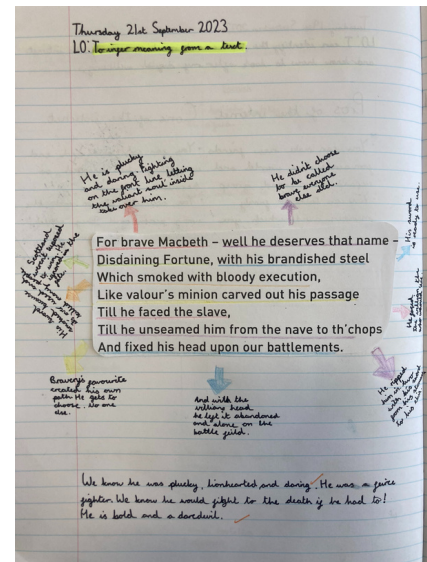 Thursday 21st September 2023
LO: To infer meaning from a text.
He is plucky
and daring. Fighting
on the front line, letting
the valiant soul inside
take over him.
He didn't choose
to be called
brave everyone
else did.
His sword
is ready to use.
For brave Macbeth – well he deserves that name –
Disdaining Fortune, with his brandished steel
Which smoked with bloody execution,
Like valour's minion carved out his passage
Till he faced the slave,
Till he unseamed him from the nave to th'chops
And fixed his head upon our battlements.
He faced
the
Bravery's favourite
created his own
path. He gets to
choose. No one
else.
And with the
villiany head
he left it abandoned
and alone on the
battle feild.
He ripped
him in two
with his sword
from his
to his
We know he was plucky, lionhearted and daring. He was a feirce
fighter. We know he would fight to the death if he had to!
He is bold and a daredevil.